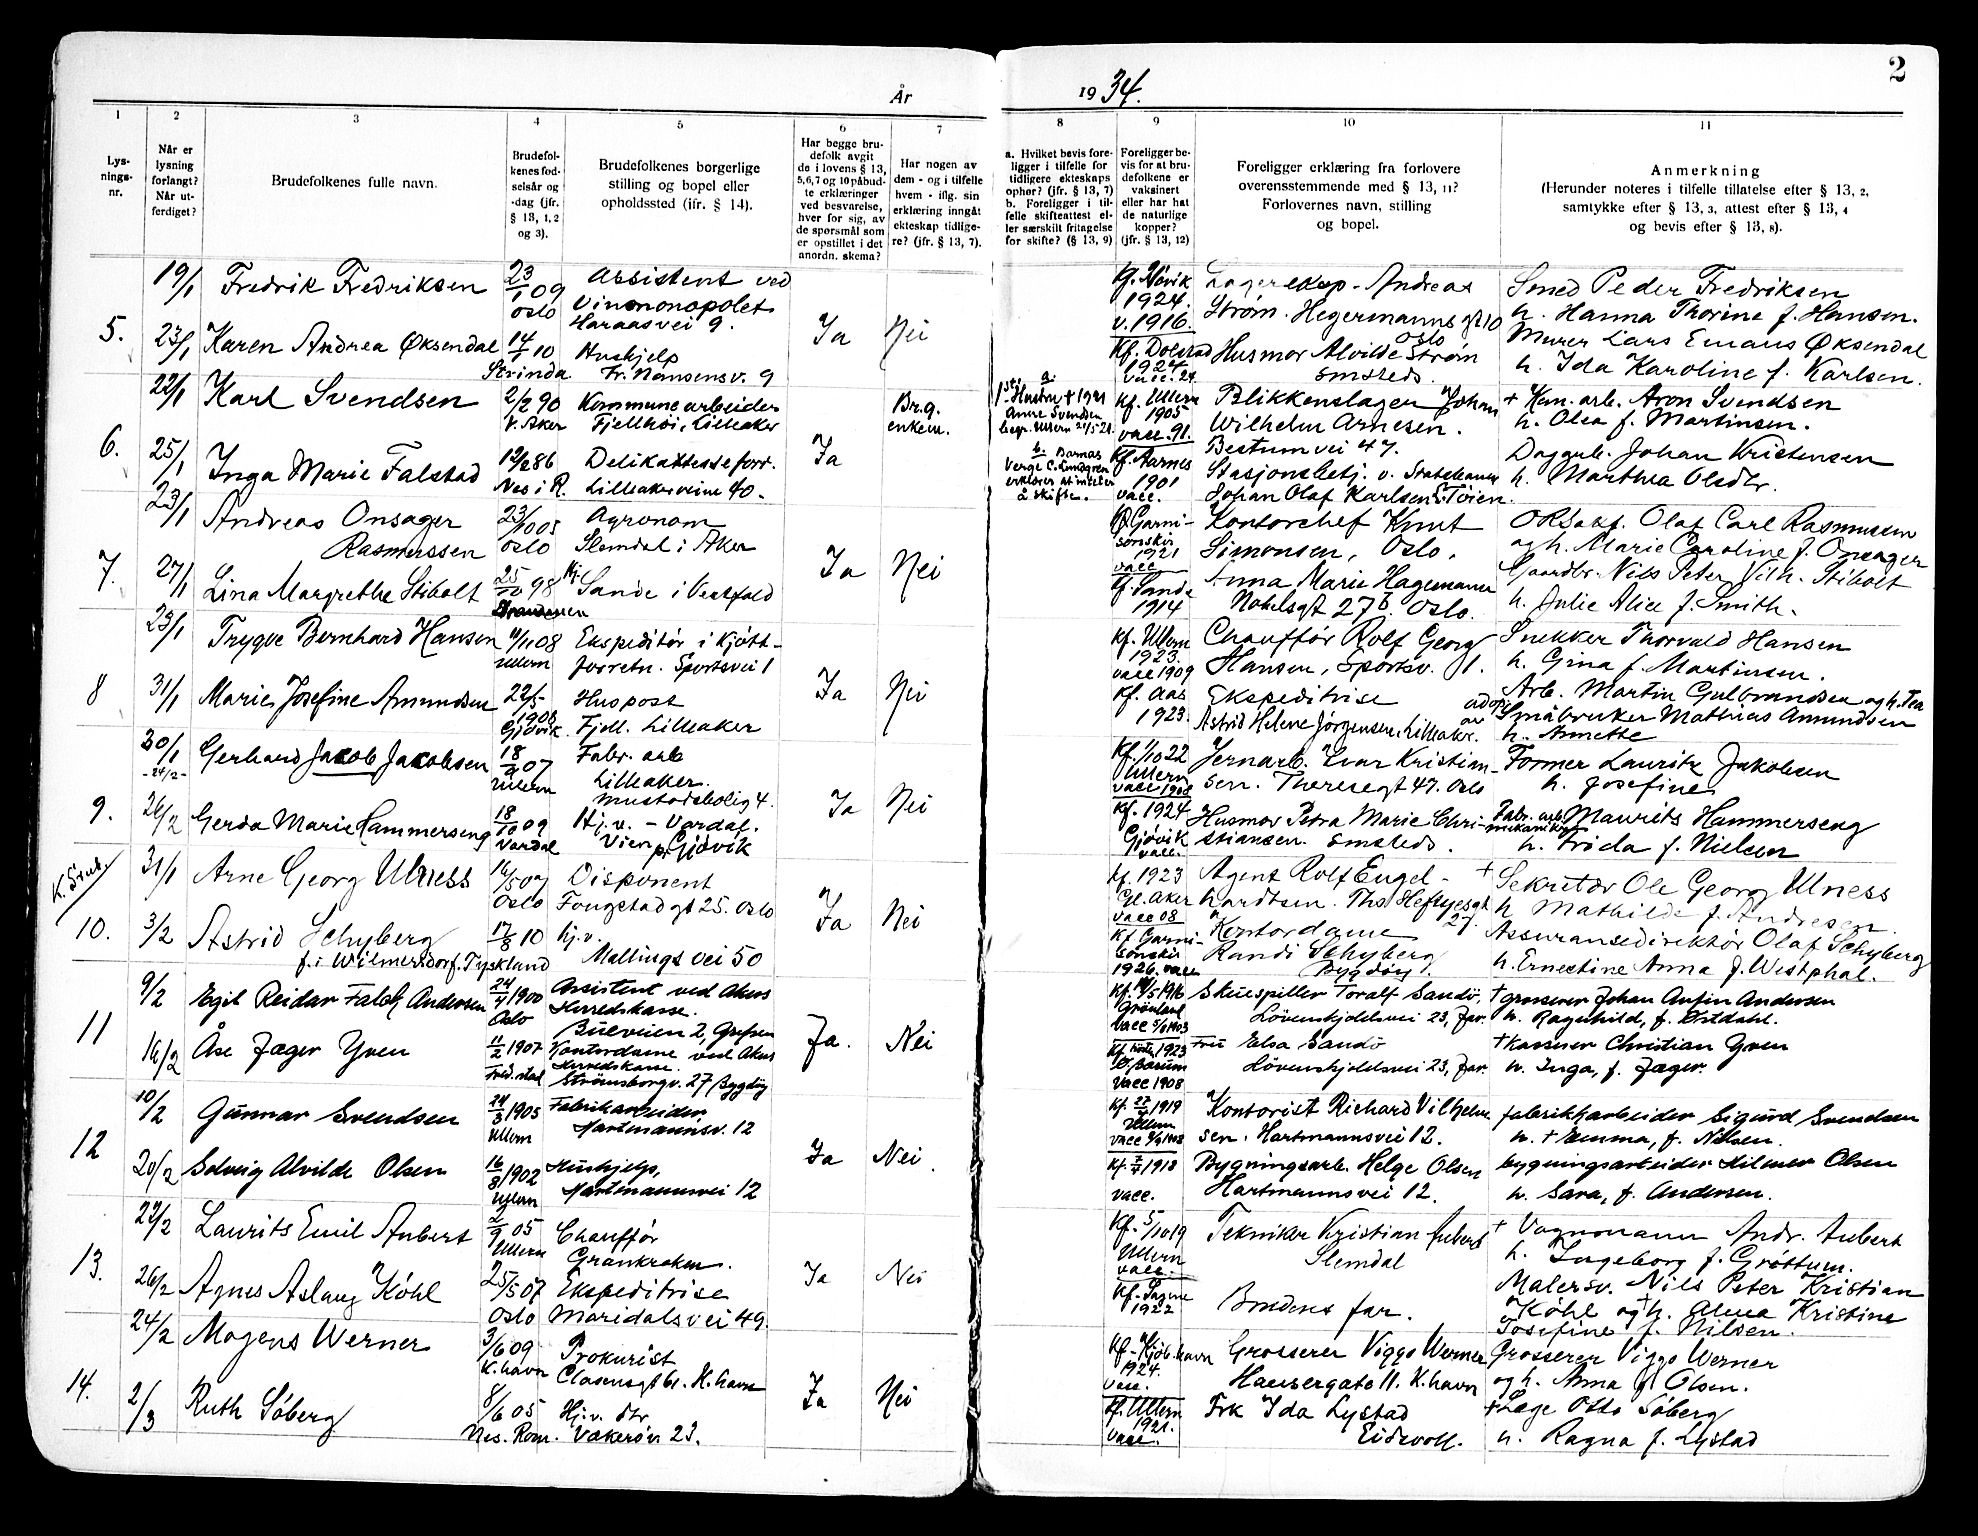 2
År 1934.
1 2 3 4 5 6 7 8 9 10 11
Lys-
nings-
nr.
Når er
lysning
forlangt?
Når ut-
ferdiget?
Brudefolkenes fulle navn.
Brudefol-
kenes fød-
selsår og
-dag (jfr.
§ 13, 1, 2
og 3).
Brudefolkenes borgerlige
stilling og bopel eller
opholdssted (ifr. § 14).
Har begge bru-
defolk avgit
de i lovens § 13,
5,6,7 og 10 påbud-
te erklæringer
ved besvarelse,
hver for sig, av
de spørsmål som
er opstillet i det
anordn. skema?
Har nogen av
dem - og i tilfelle
hvem - iflg. sin
erklæring inngåt
ekteskap tidlige-
re? (jfr. § 13, 7).
a. Hvilket bevis fore-
ligger i tilfelle for
tidligere ekteskaps
ophør? (jfr. § 13, 7)
b. Foreligger i til-
felle skifteattest el-
ler særskilt fritagelse
for skifte? (§ 13, 9)
Foreligger be-
vis for at bru-
defolkene er
vaksinert
eller har hat
de naturlige
kopper?
(jfr. § 13, 12)
Foreligger erklæring fra forlovere
overensstemmende med § 13, 11?
Forlovernes navn, stilling
og bopel.
Anmerkning
(Herunder noteres i tilfelle tillatelse efter § 13, 2,
samtykke efter § 13, 3, attest efter § 13, 4
og bevis efter § 13, 8).
5.
19/1 Fredrik Fredriksen 23/1 09 Oslo
Assistent ved
Vinmonopolet
Haraasvei 9.
Kf. Høvik
1924.
v. 1916.
Lagerekspp. Andreas
Strøm. Hegermannsgt 10
Oslo
Smed Peder Fredriksen
h. Hanna Thorine f. Hansen.
23/1 Karen Andrea Øksendal 14/1 10 Strinda
Hushjelp
Fr. Nansensv. 9
Ja Nei
Kf. Dolstad
1924
vacc. 24
Husmor Alvilde Strøm
smsteds.
Murer Lars Emaus Øksendal
h. Ida Karoline f. Karlsen.
6.
22/1 Karl Svendsen 2/2 90 V. Aker
Kommunearbeider
Fjellhøi, Lilleaker
Br.g.
enkem.
a.
1ste Hustru † 1921
Anne Svendsen
begr. Ullern 21/5 21.
Kf. Ullern
1905
vacc. 91.
Blikkenslager Johan
Wilhelm Arnesen.
Bestumvei 47.
† Kom. arb. Aron Svendsen
h. Olea f. Martinsen.
25/1 Inga Marie Falstad 12/2 86 Nes i R.
Delikattesseforr.
Lilleakerveien 40.
Ja
b. Barnas
Verge C. Lundgren
erklærer at intet er
å skifte.
Kf. Aarnes
1901
vacc.
Stasjonsbetj. v. Statsbanen
Johan Olaf Karlsen. Tøien.
Daggrb. Johan Kristensen
h. Marthea Olsdtr.
7.
23/1 Andreas Onsager
Rasmussen 23/10 05 Oslo
Agronom
Slemdal i Aker
Kf. Garni-
sonskir
1921
vacc
Kontorchef Knut
Simonsen, Oslo.
ORSakf. Olaf Carl Rasmussen
og h. Marie Caroline f. Onsager
27/1 Lina Margrethe Stibolt 25/10 98
Hj. Sande i Vestfold
Ja Nei
Kf. Sande
1914
Anna Marie Hagemann
Nobelsgt 27b. Oslo.
Gaardbr. Nils Peter Vilh. Stibolt
h. Julie Alice f. Smith.
8
23/1 Trygve Bernhard Hansen 11/11 08 Ullern
Ekspeditør i Kjøtt-
forretn. Sportsvei 1
Kf. Ullern
1923.
vacc 1909
Chauffør Rolf Georg
Hansen, Sportsv. 1.
Snekker Thorvald Hansen
h. Gina f. Martinsen.
31/1 Marie Josefine Amundsen 22/5- 1908 Gjøvik
Huspost
Fjell. Lilleaker
Ja Nei
Kf. Aas
1923.
Ekspeditrise
Astrid Helene Jørgensen, Lilleaker.
Arb. Martin Gulbrandsen og h. Tea
adop. av Småbruker Mathias Amundsen
h. Annette
9.
30/1 -24/2- Gerhard Jacob Jacobsen 18/9 07 Ullern
Fabr. arb
Lilleaker.
Mustadsbolig 4.
Kf. 1/10 22
Ullern
vacc 1908
Jernarb. Ivar Kristian-
sen. Theresegt 47. Oslo
Former Lauritz Jakobsen
h. Josefine
26/2 Gerda Marie Hammerseng 18/10 09 Vardal
Hj. v. - Vardal.
Vien pr Gjøvik
Ja Nei
Kf. 1924
Gjøvik
vacc.
Husmor Petra Marie Chri-
stiansen. Smsteds.
Fabr. arb. Maurits Hammerseng
mekaniker
h. Frida f. Nielsen
K. Grub.
10.
31/1 Arne Georg Ulness 16/5 07 Oslo
Disponent
Fougstadgt 25. Oslo
Kf. 1923
Gl. Aker
vacc 08
Agent Rolf Engel-
hardtsen. Ths Heftyesgt
27.
† Sekretær Ole Georg Ulness
h Mathilde f. Andresen.
3/2 Astrid Schyberg 17/8 10
f. i Wilmersdorf. Tyskland
hj. v.
Mallings vei 50
Ja Nei
Kf Garni-
sonskir
1926. vacc
Kontordame
Randi Schyberg
Bygdøy.
Assuransedirektør Olaf Schyberg
h. Ernestine Anna f. Westphal.
11
9/2 Egil Reidar Falch Andersen 24/4 1900 Oslo
Assistent ved Akers
Herredskasse.
Bueveien 2, Grefsen
Grønland
Skuespiller Toralf Sandø,
Løvenskjoldsvei 23, Jar.
† grosserer Johan Anfin Andersen
h. Ragnhild, f. Østdahl.
16/2 Åse Jæger Yven 11/2 1907 Fred.stad
Kontordame ved Akers
Herredskasse.
Strømsborgv. 27 Bygdøy
Ja. Nei
1923
Ø. Bærum
vacc 1908
Fru Elsa Sandø
Løvenskjoldsvei 23, Jar.
† kasserer Christian Yven
h. Inga, f. Jæger.
12
10/2 Gunnar Svendsen 24/3 1905 Ullern
Fabrikarbeider
Hartmannsv. 12
1919
Ullern
Kontorist Richard Vilhelm-
sen. Hartmannsvei 12.
fabrikkarbeider Sigurd Svendsen
h. † Emma, f. Nilsen.
20/2 Solveig Alvilde Olsen 16/8 1902 Ullern
Hushjelp,
Hartmannsvei 12
Ja Nei.
1918
vacc.
Bygningsarb. Helge Olsen
Hartmannsvei 12.
bygningsarbeider Hilmer Olsen
h. Sara, f. Andersen.
13.
22/2 Laurits Emil Aubert 2/9 05 Ullern
Chauffør
Grankroken.
Kf. 5/10 19
Ullern
vacc.
Tekniker Kristian Aubert
Slemdal
† Vognmann Andr. Aubert
h. Ingeborg f. Grøttum.
26/2 Agnes Aslaug Køhl 25/5 07 Oslo
Ekspeditrise
Maridalsvei 49.
Ja Nei
Kf. Sagene
1922
Brudens far.
Malersv. Nils Peter Kristian
Køhl og h. † Alma Kristine
Josefine f. Nilsen.
14.
24/2 Mogens Werner 3/6 09 K.havn
Prokurist
Clasensgt 61. K.havn
Kf. Kjøb.havn
1924.
vacc.
Grosserer Viggo Werner
Hausergate 11. K.havn
Grosserer Viggo Werner
og h. Anna f. Olsen.
2/3 Ruth Søberg 8/6 05 Nes. Rom.
Hj. v. dtr
Vækerøv 23.
Ja Nei
Kf. Ullern
1921.
vacc.
Frk Ida Lystad
Eidsvoll.
† Læge Otto Søberg
h. Ragna f. Lystad